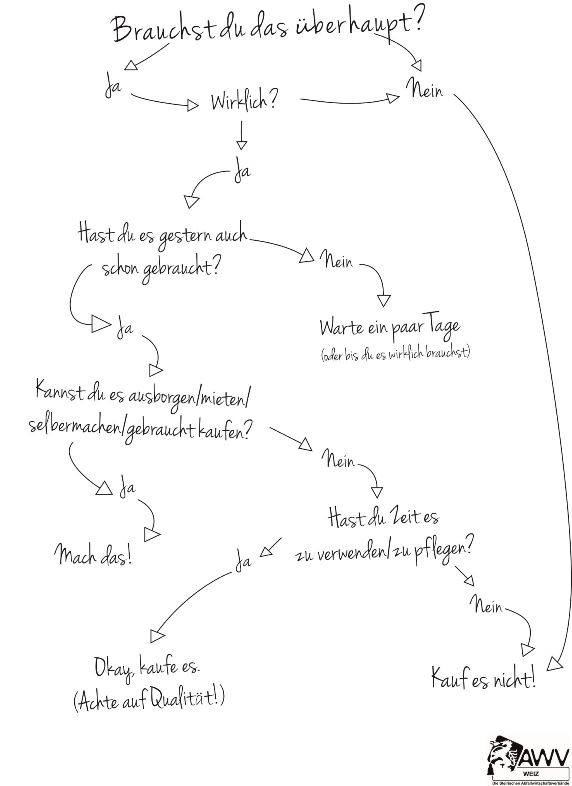 Brauchst du das überhaupt?
Ja
Wirklich?
Nein
Ja
Hast du es gestern auch
schon gebraucht?
Nein
Ja
Warte ein paar Tage
(oder bis du es wirklich brauchst)
Kannst du es ausborgen/mieten/
selbermachen/gebraucht kaufen?
Nein
Ja
Hast du Zeit es
zu verwenden/zu pflegen?
Mach das!
Ja
Nein
Okay, kaufe es.
(Achte auf Qualität!)
Kauf es nicht!
AWV
WEIZ
Die Steirischen Abfallwirtschaftsverbände